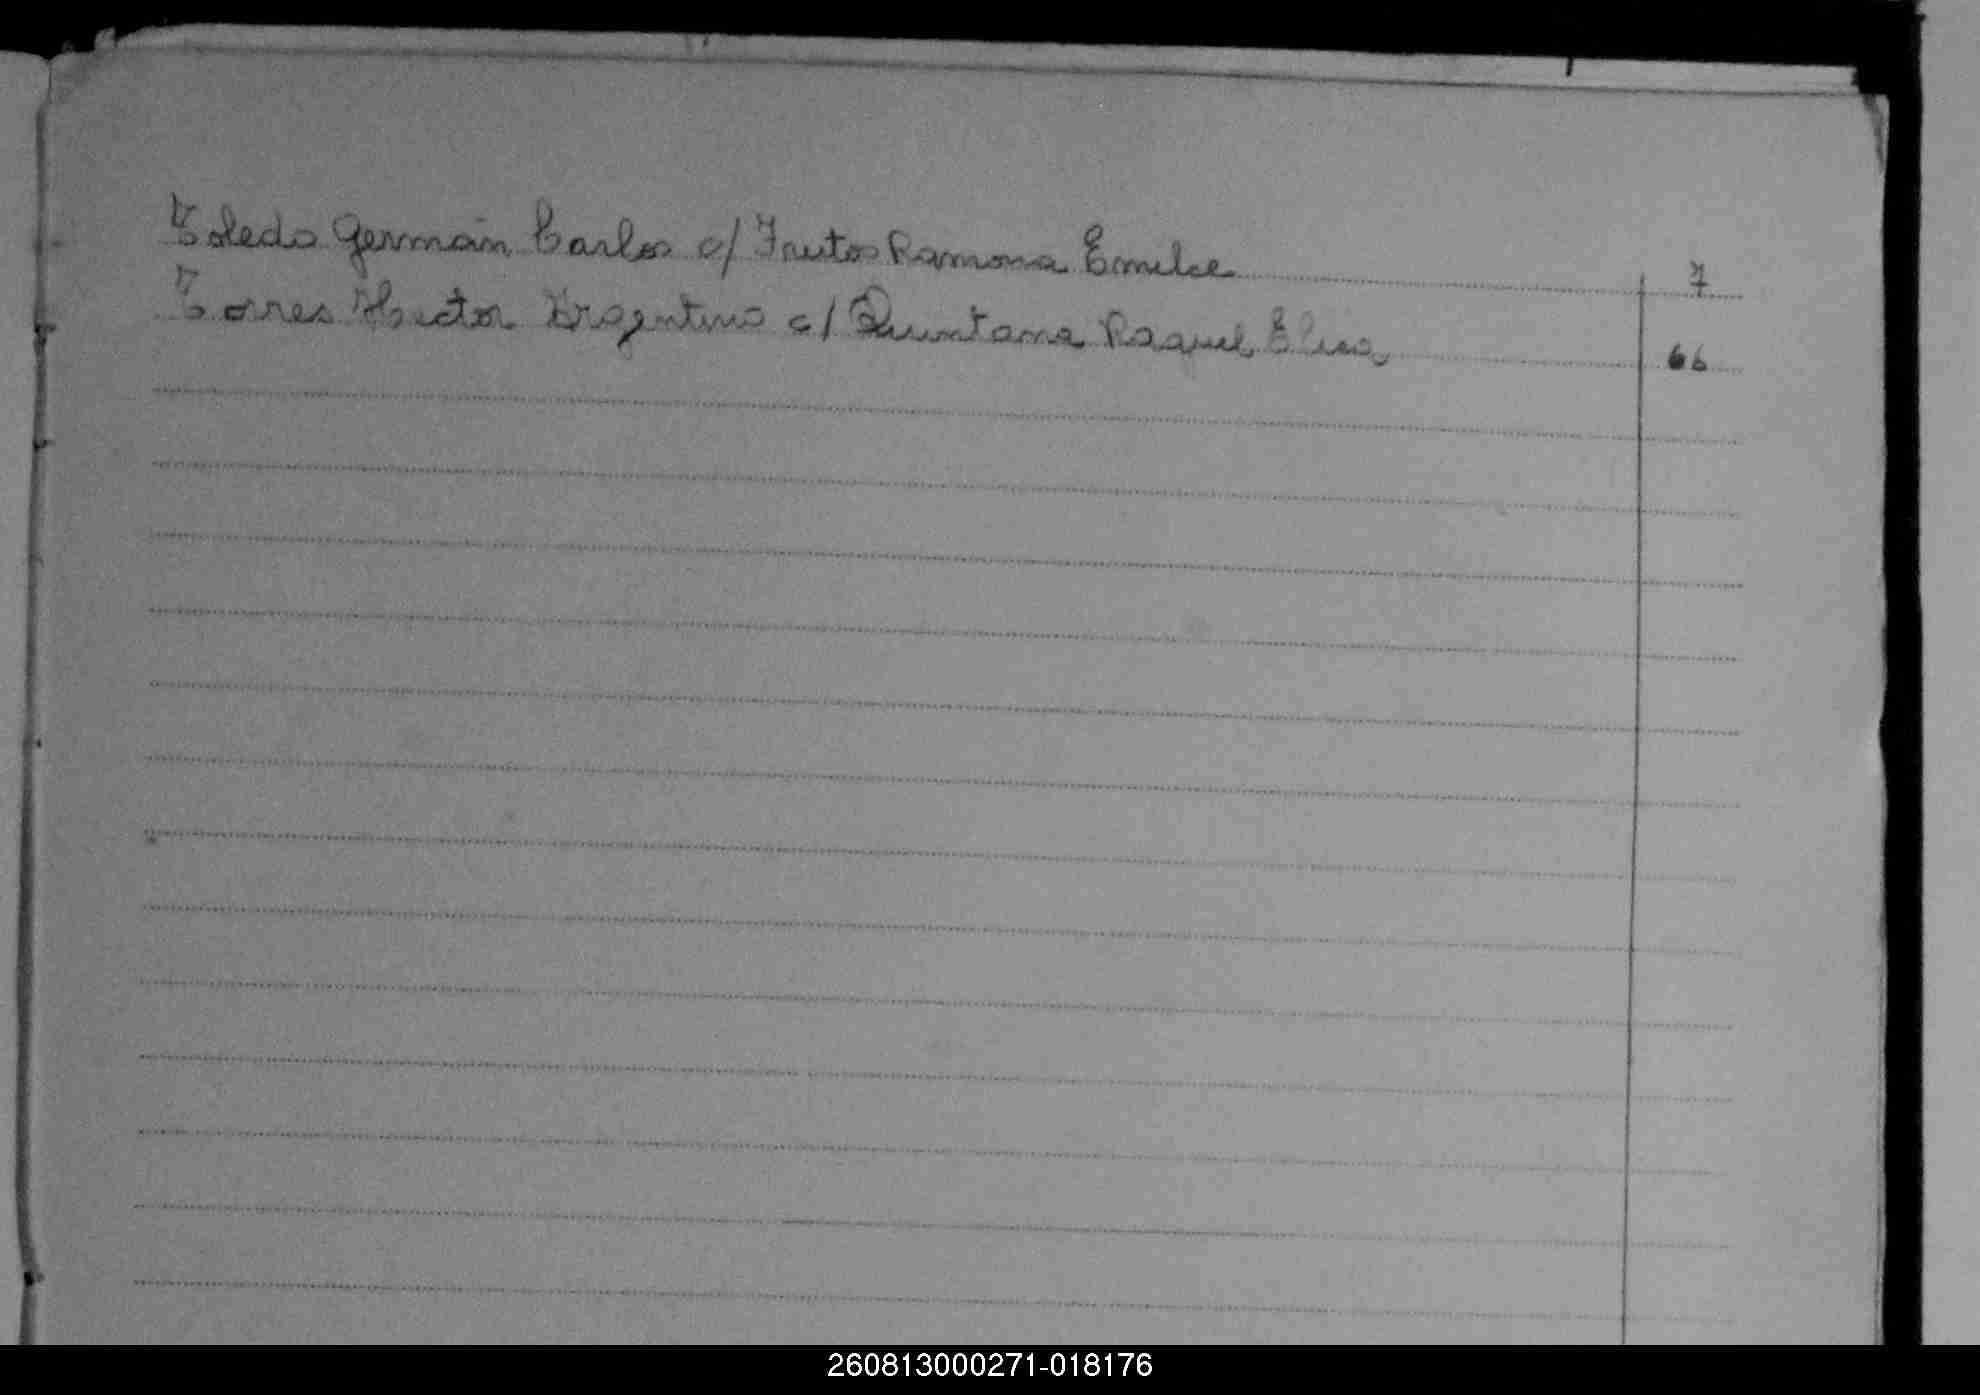 Toledo Germán Carlos c/ Frutos Ramona Emilce 7
Torres Hector Argentino c/ Quintana Raquel Elisa 66
260813000271-018176